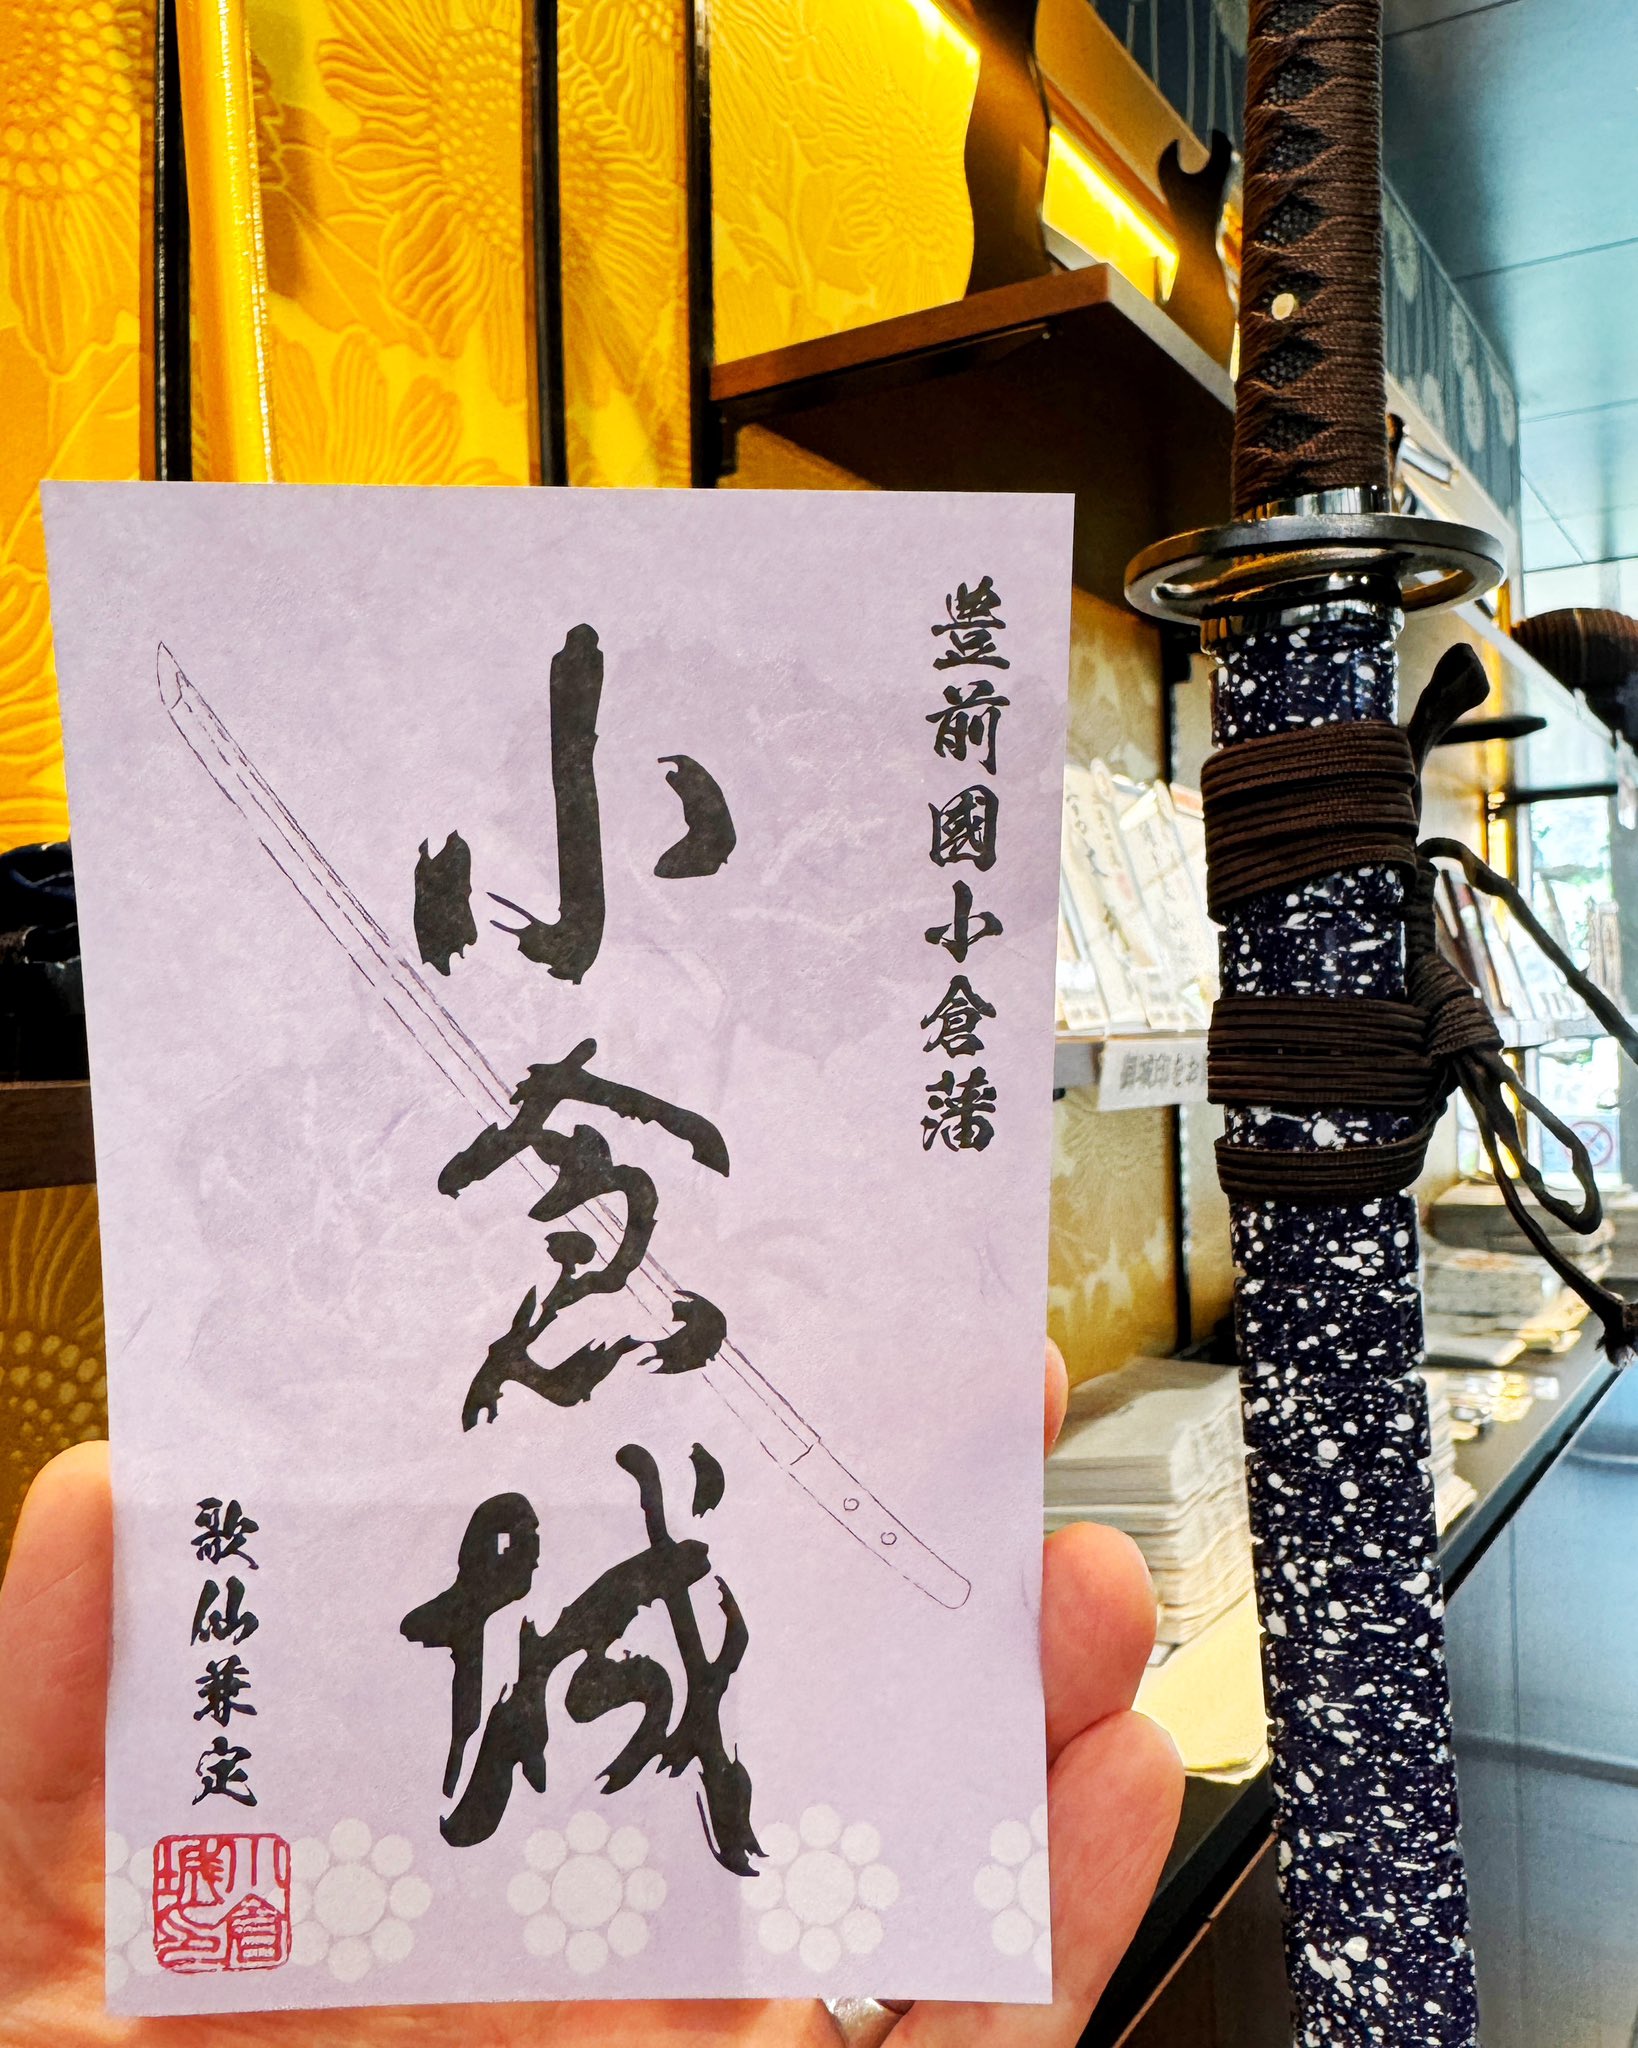 豊前國小倉藩
小倉城
歌仙兼定
小倉城印
御城印をお